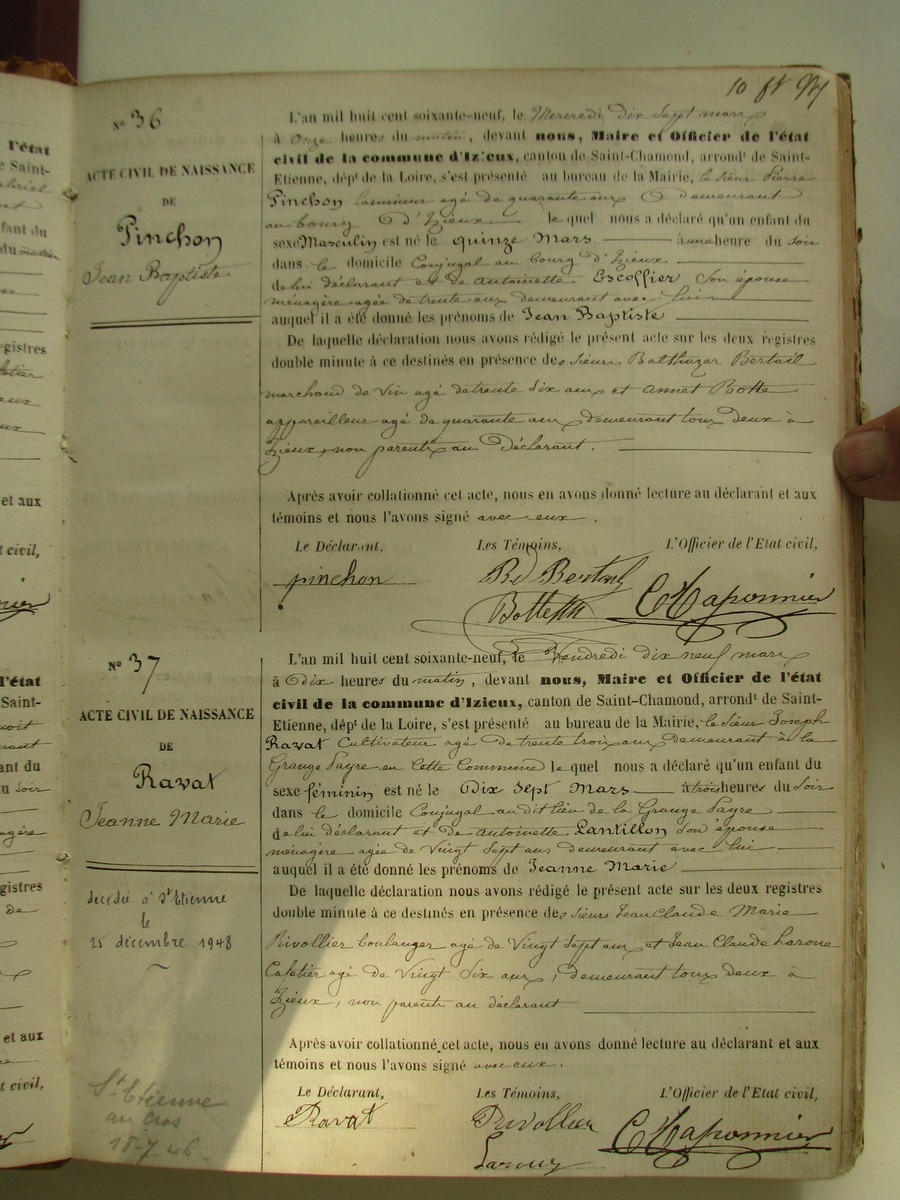 10 ft
N° 36
ACTE CIVIL DE NAISSANCE
DE
Pinchon
Jean Baptiste
L'an mil huit cent soixante-neuf, le Mercredi dix Sept mars
à Onze heures du matin, devant nous, Maire et Officier de l'état
civil de la commune d'Izieux, canton de Saint-Chamond, arrondt de Saint-
Etienne, dépt de la Loire, s'est présenté au bureau de la Mairie, le sieur Pierre
Pinchon lamineur agé de quarante ans demeurant
au bourg d'Izieux le quel nous a déclaré qu'un enfant du
sexe Masculin est né le quinze Mars à une heure du soir
dans le domicile Conjugal au bourg d'Izieux
de lui déclarant et de Antoinette Escoffier Son épouse
ménagère agée de trente ans demeurant avec lui
auquel il a été donné les prénoms de Jean Baptiste
De laquelle déclaration nous avons rédigé le présent acte sur les deux registres
double minute à ce destinés en présence des sieurs Balthazar Bertail
marchand de vin agé de trente six ans et Annet Botte
appareilleur agé de quarante ans demeurant tous deux à
Izieux, non parents au Déclarant.
Après avoir collationné cet acte, nous en avons donné lecture au déclarant et aux
témoins et nous l'avons signé avec eux.
Le Déclarant, Les Témoins, L'Officier de l'Etat civil,
pinchon Bertail CHaponnier
Botte
N° 37
ACTE CIVIL DE NAISSANCE
DE
Ravat
Jeanne Marie
décédée à St Etienne
le
25 décembre 1948
St Etienne
au Cros
18-7-46
L'an mil huit cent soixante-neuf, le Vendredi dix neuf mars
à dix heures du matin, devant nous, Maire et Officier de l'état
civil de la commune d'Izieux, canton de Saint-Chamond, arrondt de Saint-
Etienne, dépt de la Loire, s'est présenté au bureau de la Mairie, le sieur Joseph
Ravat Cultivateur agé de trente trois ans demeurant à la
Grange Payre en Cette Commune le quel nous a déclaré qu'un enfant du
sexe féminin est né le Dix Sept Mars à trois heures du Soir
dans le domicile Conjugal au dit lieu de la Grange Payre
de lui déclarant et de Antoinette Lantillon Son épouse
ménagère agée de Vingt Sept ans demeurant avec lui
auquel il a été donné les prénoms de Jeanne Marie
De laquelle déclaration nous avons rédigé le présent acte sur les deux registres
double minute à ce destinés en présence des sieurs Jean Claude Marie
Rivollier boulanger agé de Vingt Sept ans et Jean Claude Laroue
Cafetier agé de Vingt Six ans, demeurant tous deux à
Izieux, non parents au déclarant
Après avoir collationné cet acte, nous en avons donné lecture au déclarant et aux
témoins et nous l'avons signé avec eux.
Le Déclarant, Les Témoins, L'Officier de l'Etat civil,
Ravat Rivollier CHaponnier